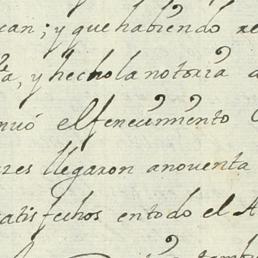 can; y que habiendo re
a, y hecho la notoria a
nuó el fenecimiento
res llegaron a noventa
satisfechos en todo el A